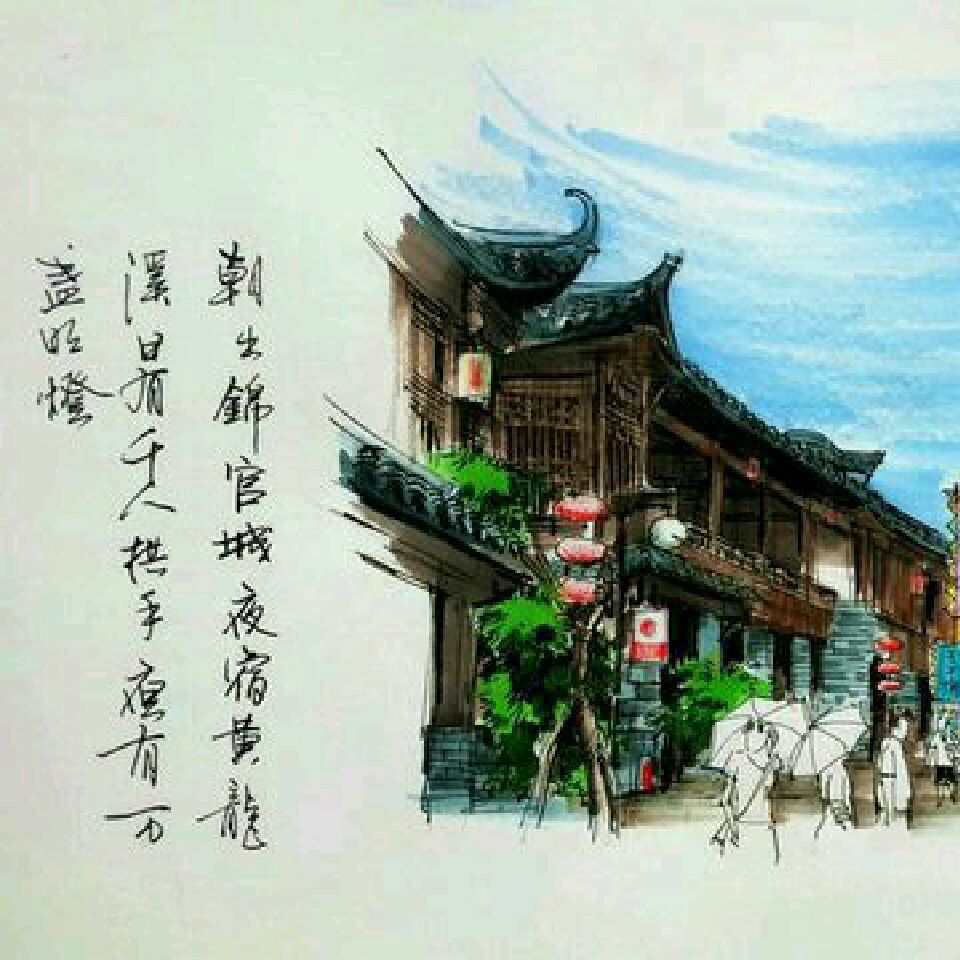 朝出錦官城夜宿黄龍
溪日有千人拱手夜有万
盏明燈